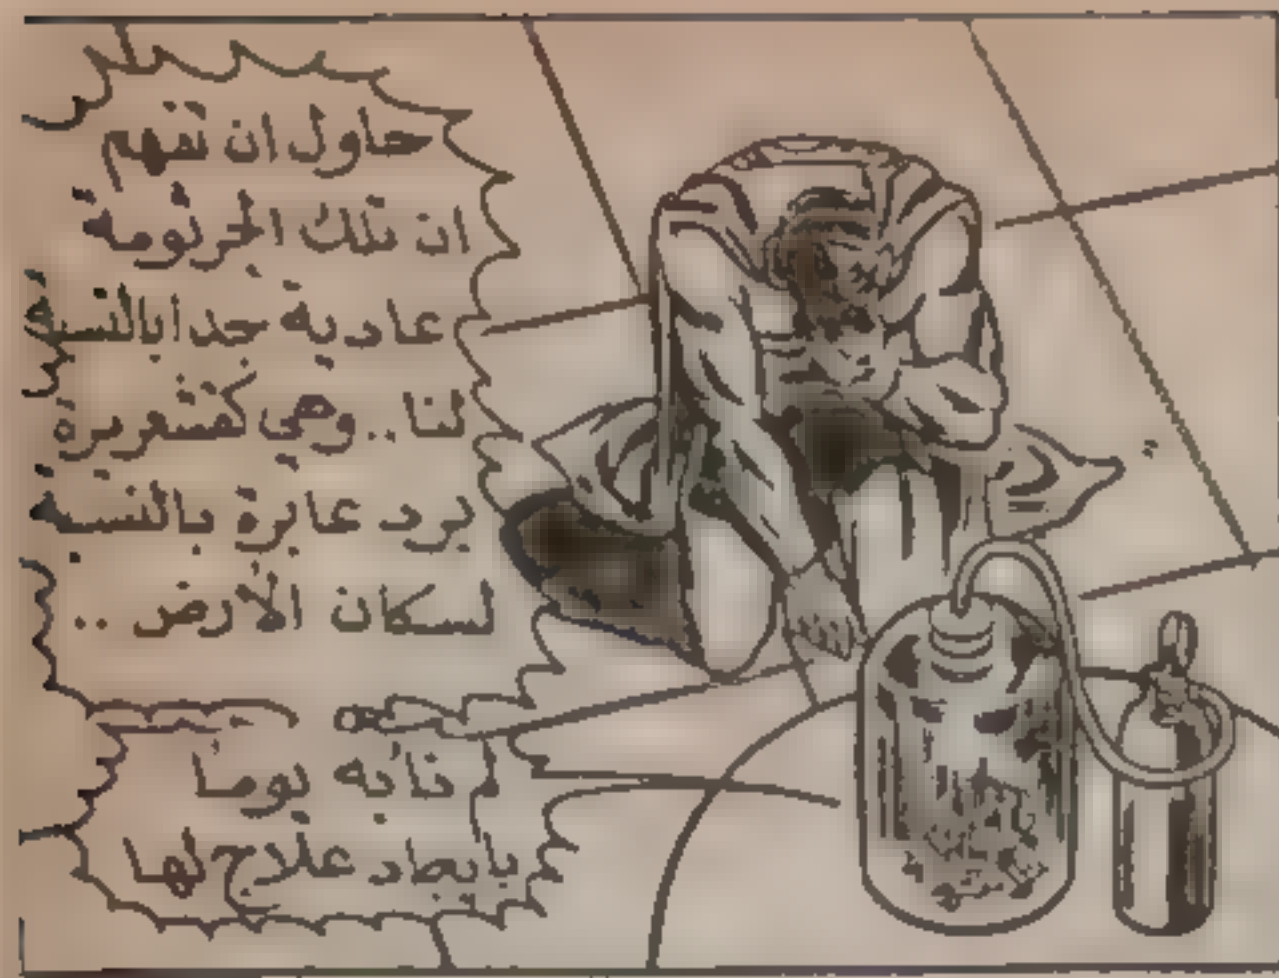 حاول ان تفهم
ان تلك الجرثومة
عادية جدا بالنسبة
لنا .. وهي كقشعريرة
برد عابرة بالنسبة
لسكان الأرض ..
لم نأبه يوما
بايجاد علاج لها